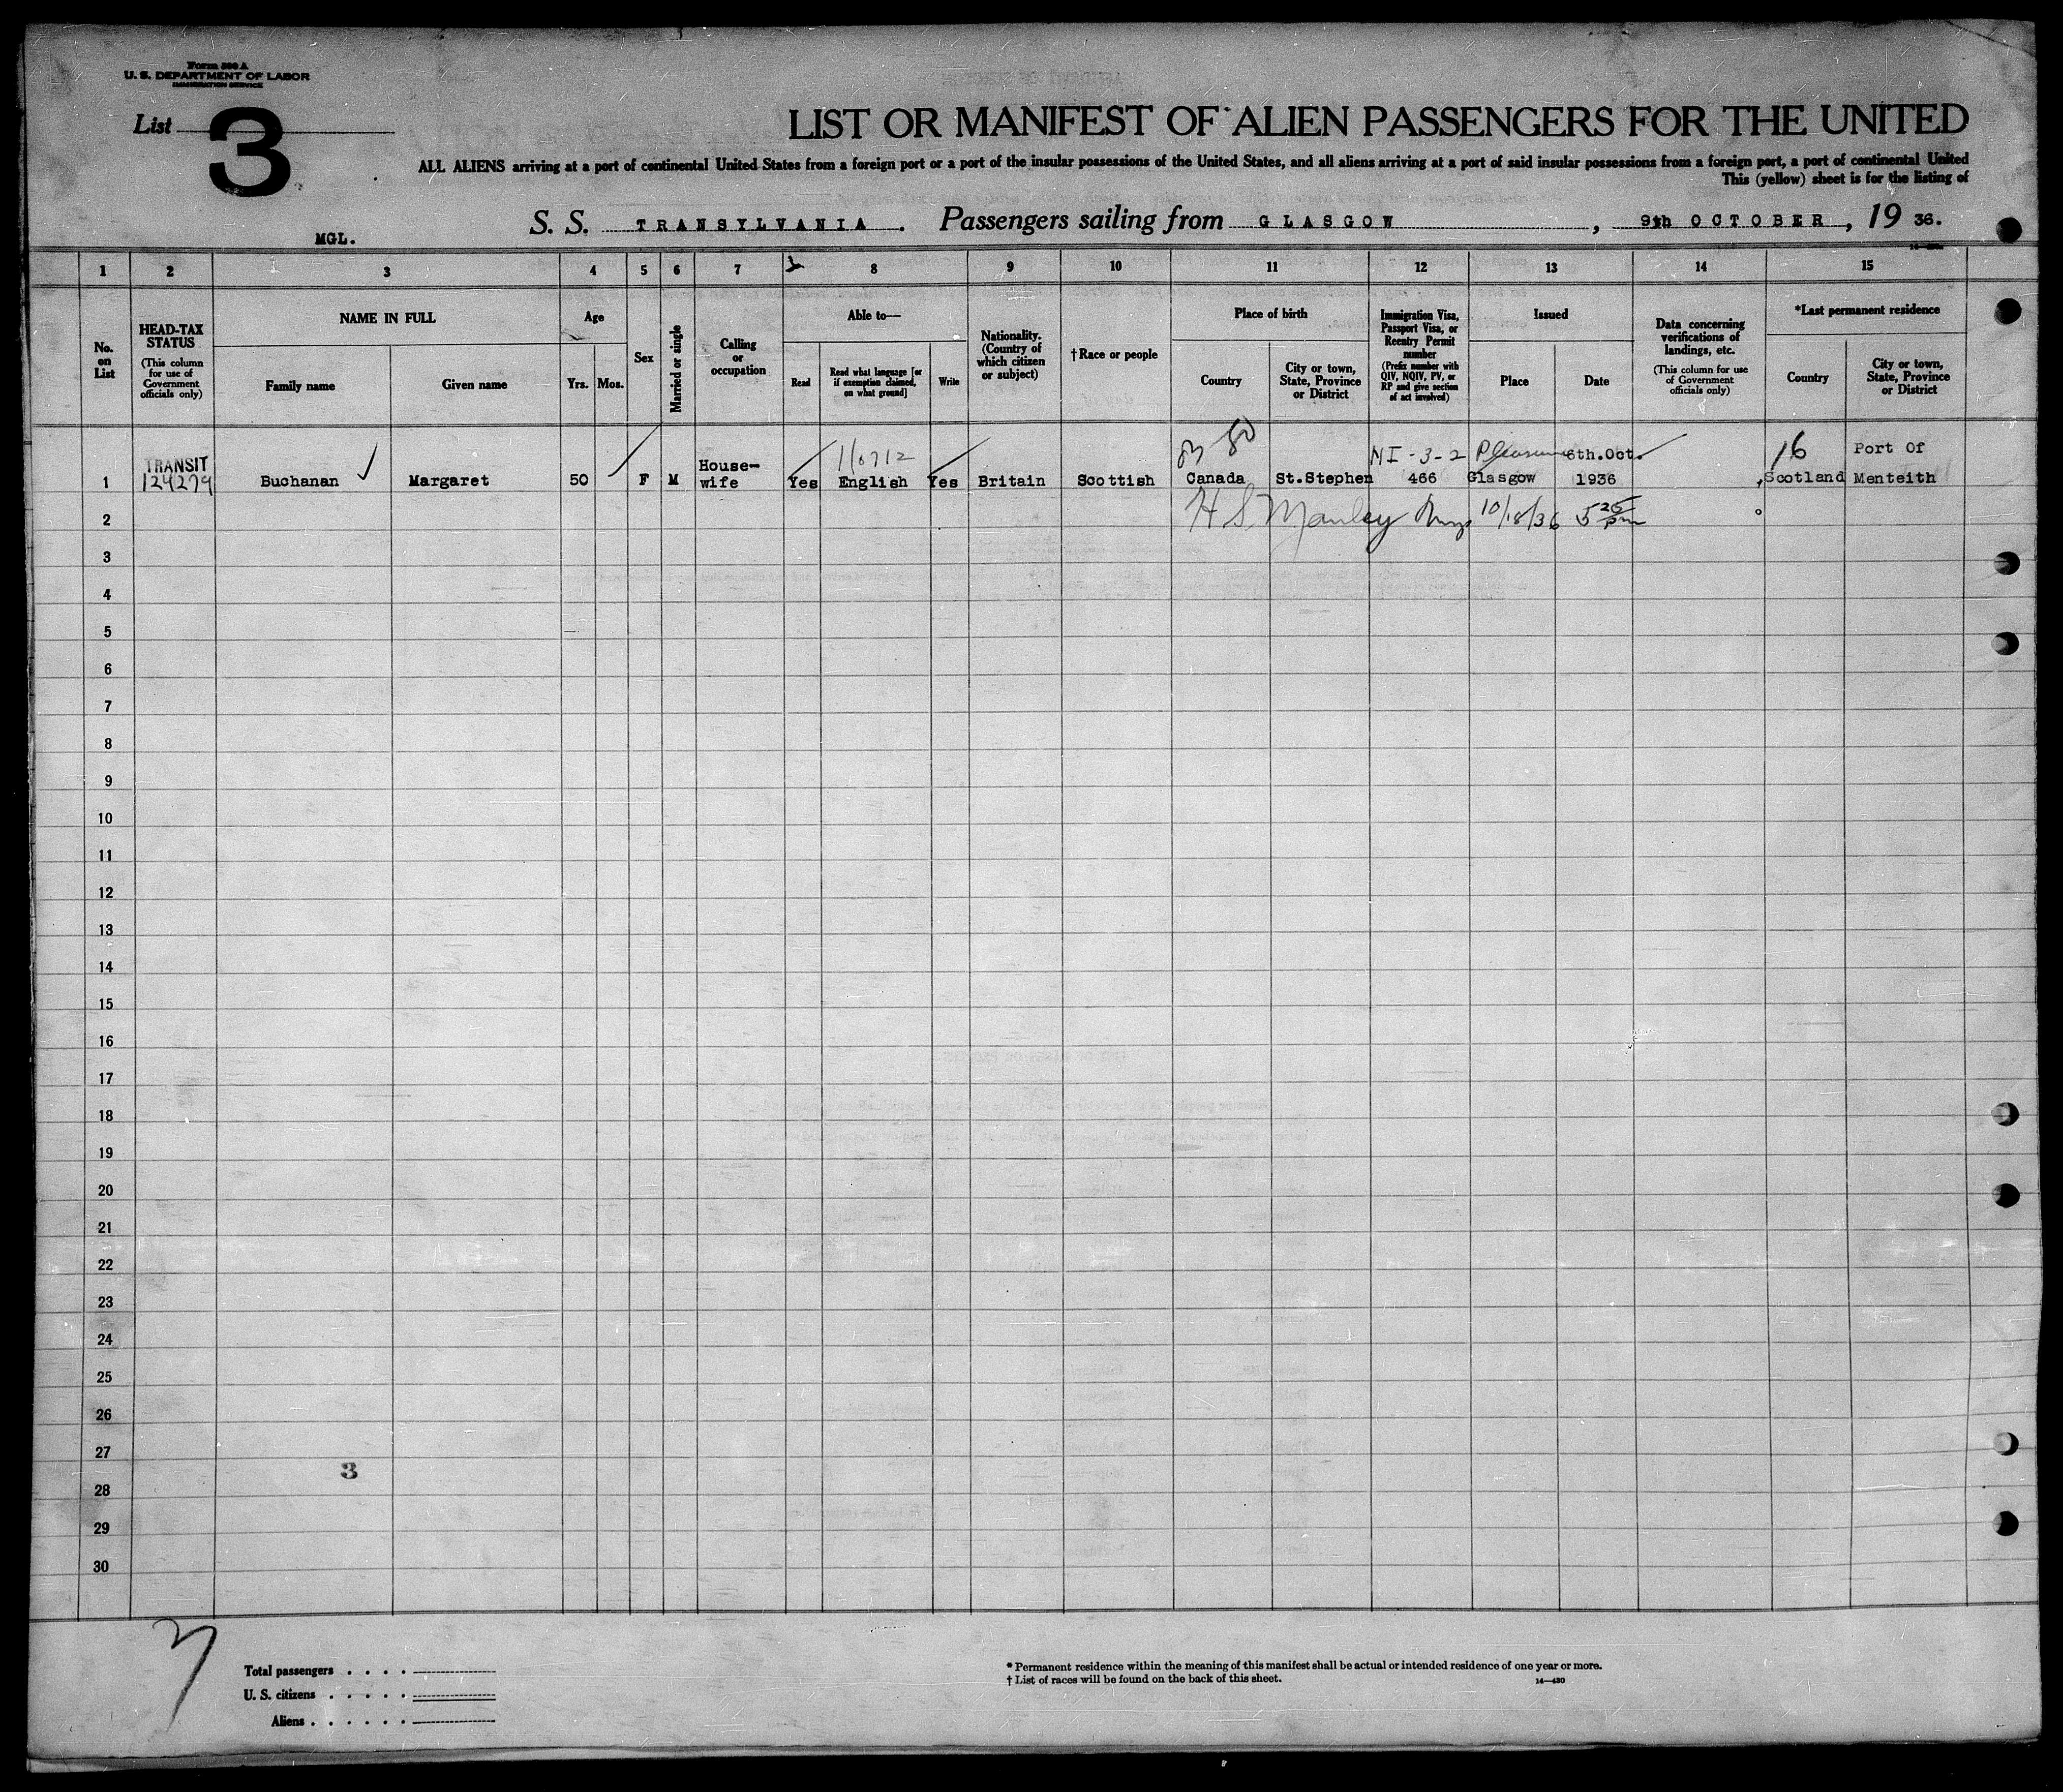 Form 500 A
U. S. DEPARTMENT OF LABOR
IMMIGRATION SERVICE
List 3
LIST OR MANIFEST OF ALIEN PASSENGERS FOR THE UNITED
ALL ALIENS arriving at a port of continental United States from a foreign port or a port of the insular possessions of the United States, and all aliens arriving at a port of said insular possessions from a foreign port, a port of continental United
This (yellow) sheet is for the listing of
MGL.
S. S. TRANSYLVANIA. Passengers sailing from GLASGOW, 9th OCTOBER, 19 36.
1 2 3 4 5 6 7 8 9 10 11 12 13 14 15
No. on List
HEAD-TAX STATUS
(This column for use of Government officials only)
NAME IN FULL
Family name
Given name
Age
Yrs. Mos.
Sex
Married or single
Calling or occupation
Able to—
Read
Read what language [or if exemption claimed, on what ground]
Write
Nationality. (Country of which citizen or subject)
† Race or people
Place of birth
Country
City or town, State, Province or District
Immigration Visa, Passport Visa, or Reentry Permit number
(Prefix number with QIV, NQIV, PV, or RP and give section of act involved)
Issued
Place
Date
Data concerning verifications of landings, etc.
(This column for use of Government officials only)
*Last permanent residence
Country
City or town, State, Province or District
80 NI-3-2 Pleasure 6th.Oct. 16 Port Of
TRANSIT House-
1 124279 Buchanan Margaret 50 F M wife Yes English Yes Britain Scottish Canada St.Stephen 466 Glasgow 1936 Scotland Menteith
2 H S Manley 10/18/36 5 25 pm
3
4
5
6
7
8
9
10
11
12
13
14
15
16
17
18
19
20
21
22
23
24
25
26
27
3
28
29
30
Total passengers . . . .
U. S. citizens . . . . .
Aliens . . . . . .
* Permanent residence within the meaning of this manifest shall be actual or intended residence of one year or more.
† List of races will be found on the back of this sheet.
14—430